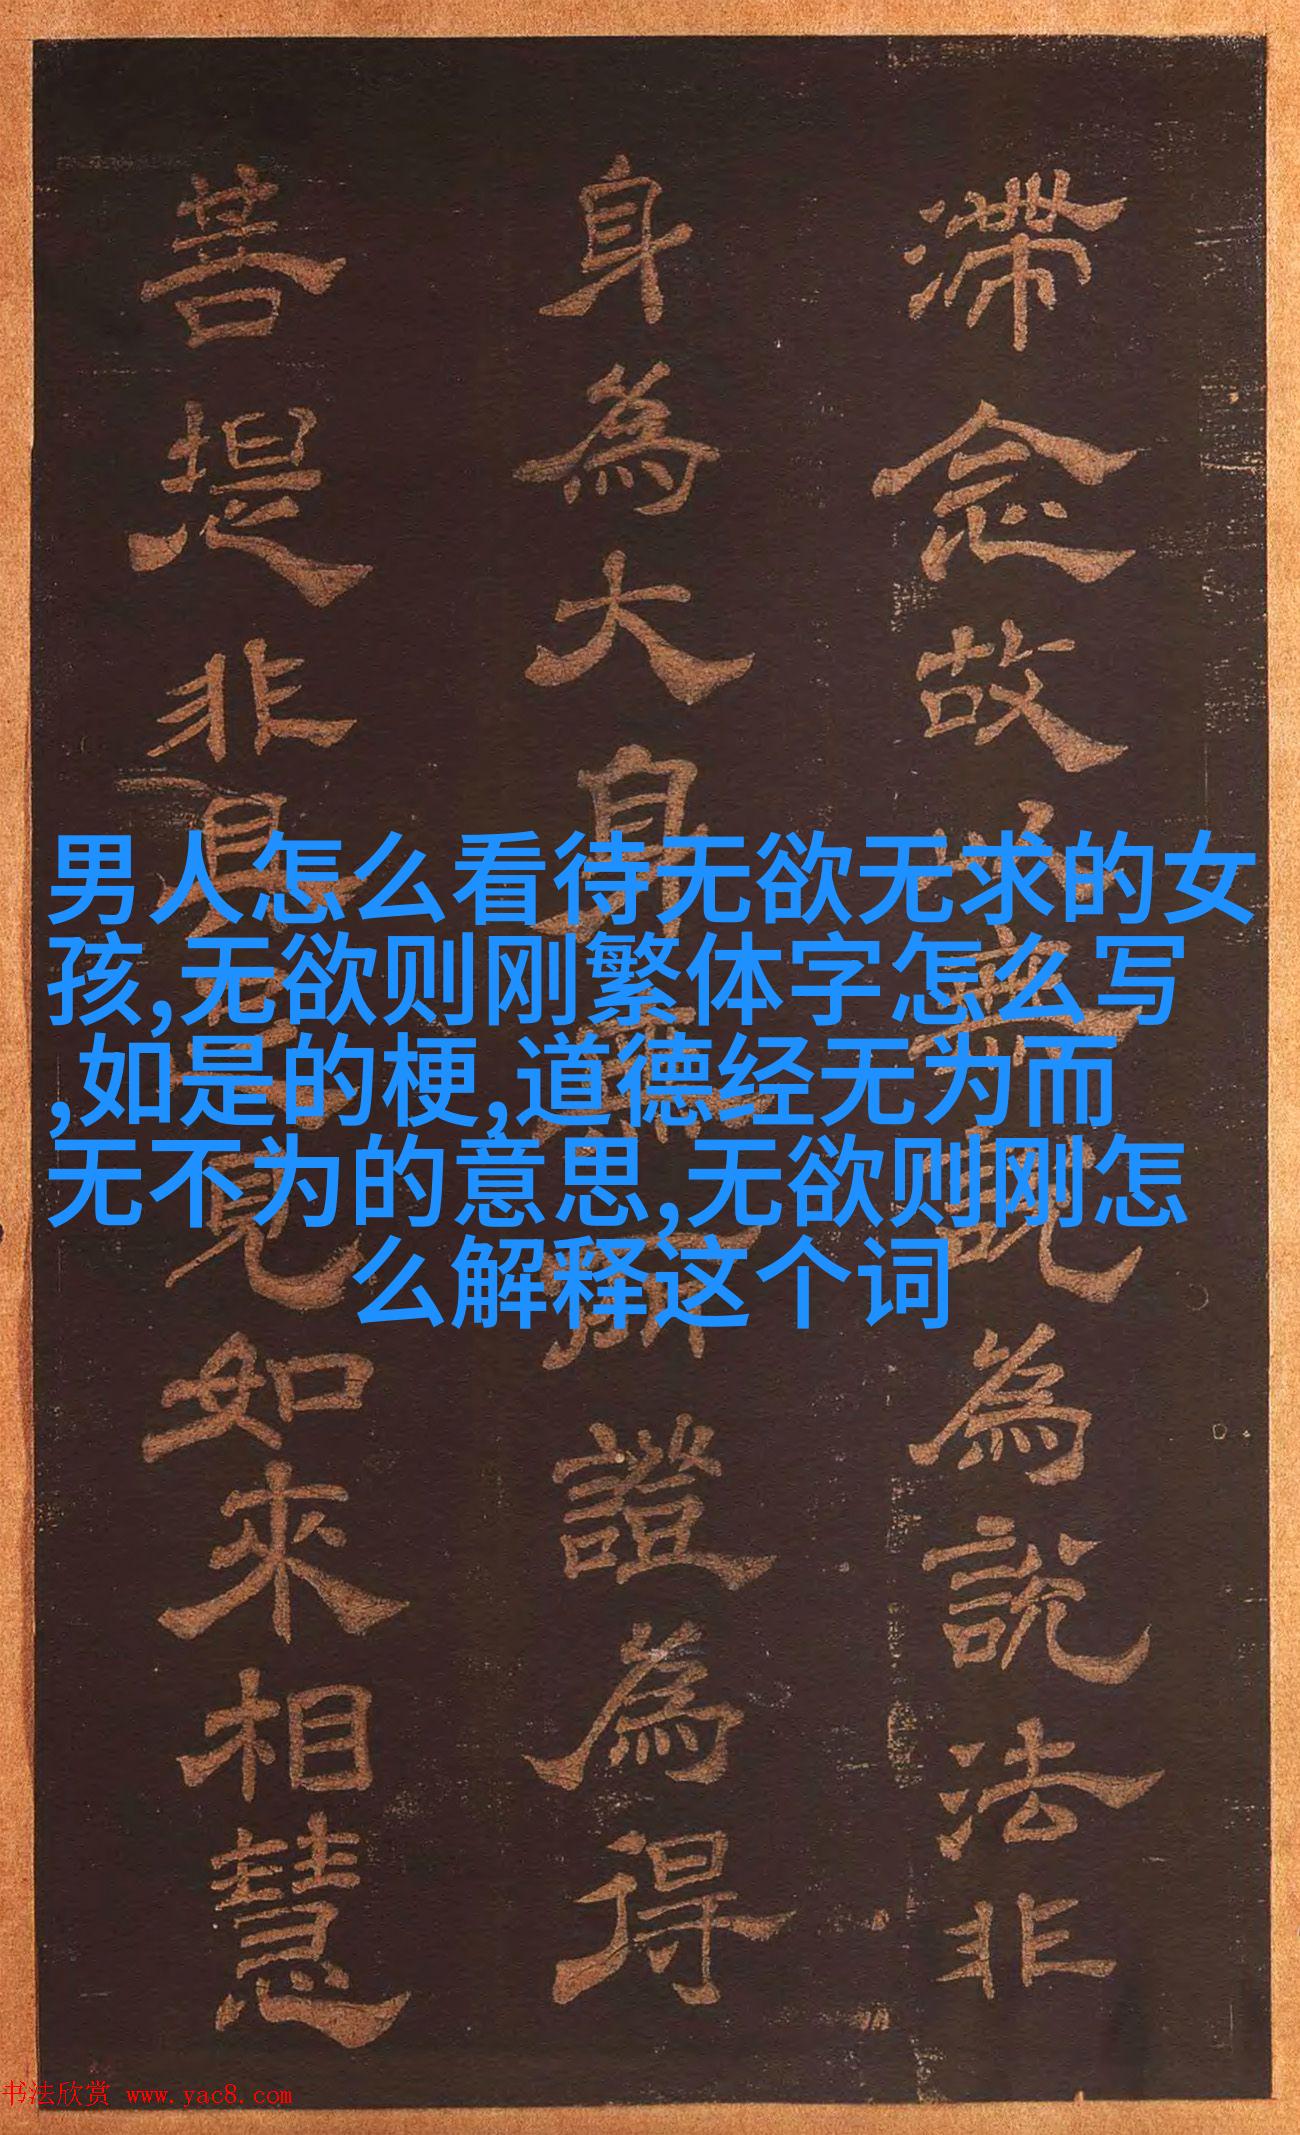 滯念故以無說為說法非
身為大身無所證為得
菩提非具見如來相慧
男人怎么看待无欲无求的女
孩,无欲则刚繁体字怎么写
,如是的梗,道德经无为而
无不为的意思,无欲则刚怎
么解释这个词
书法欣赏 www.yac8.com